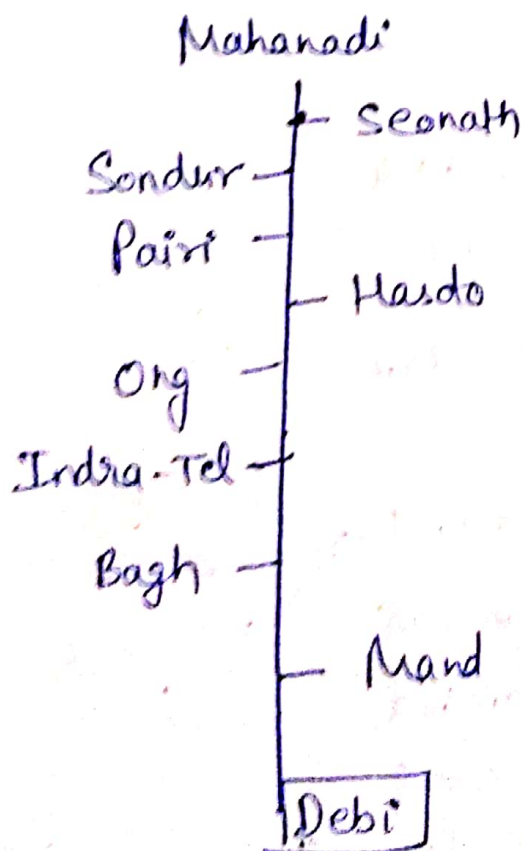 Mahanadi
Seonath
Sondur
Pairi
Hasdo
Ong
Indra-Tel
Bagh
Mand
Debi